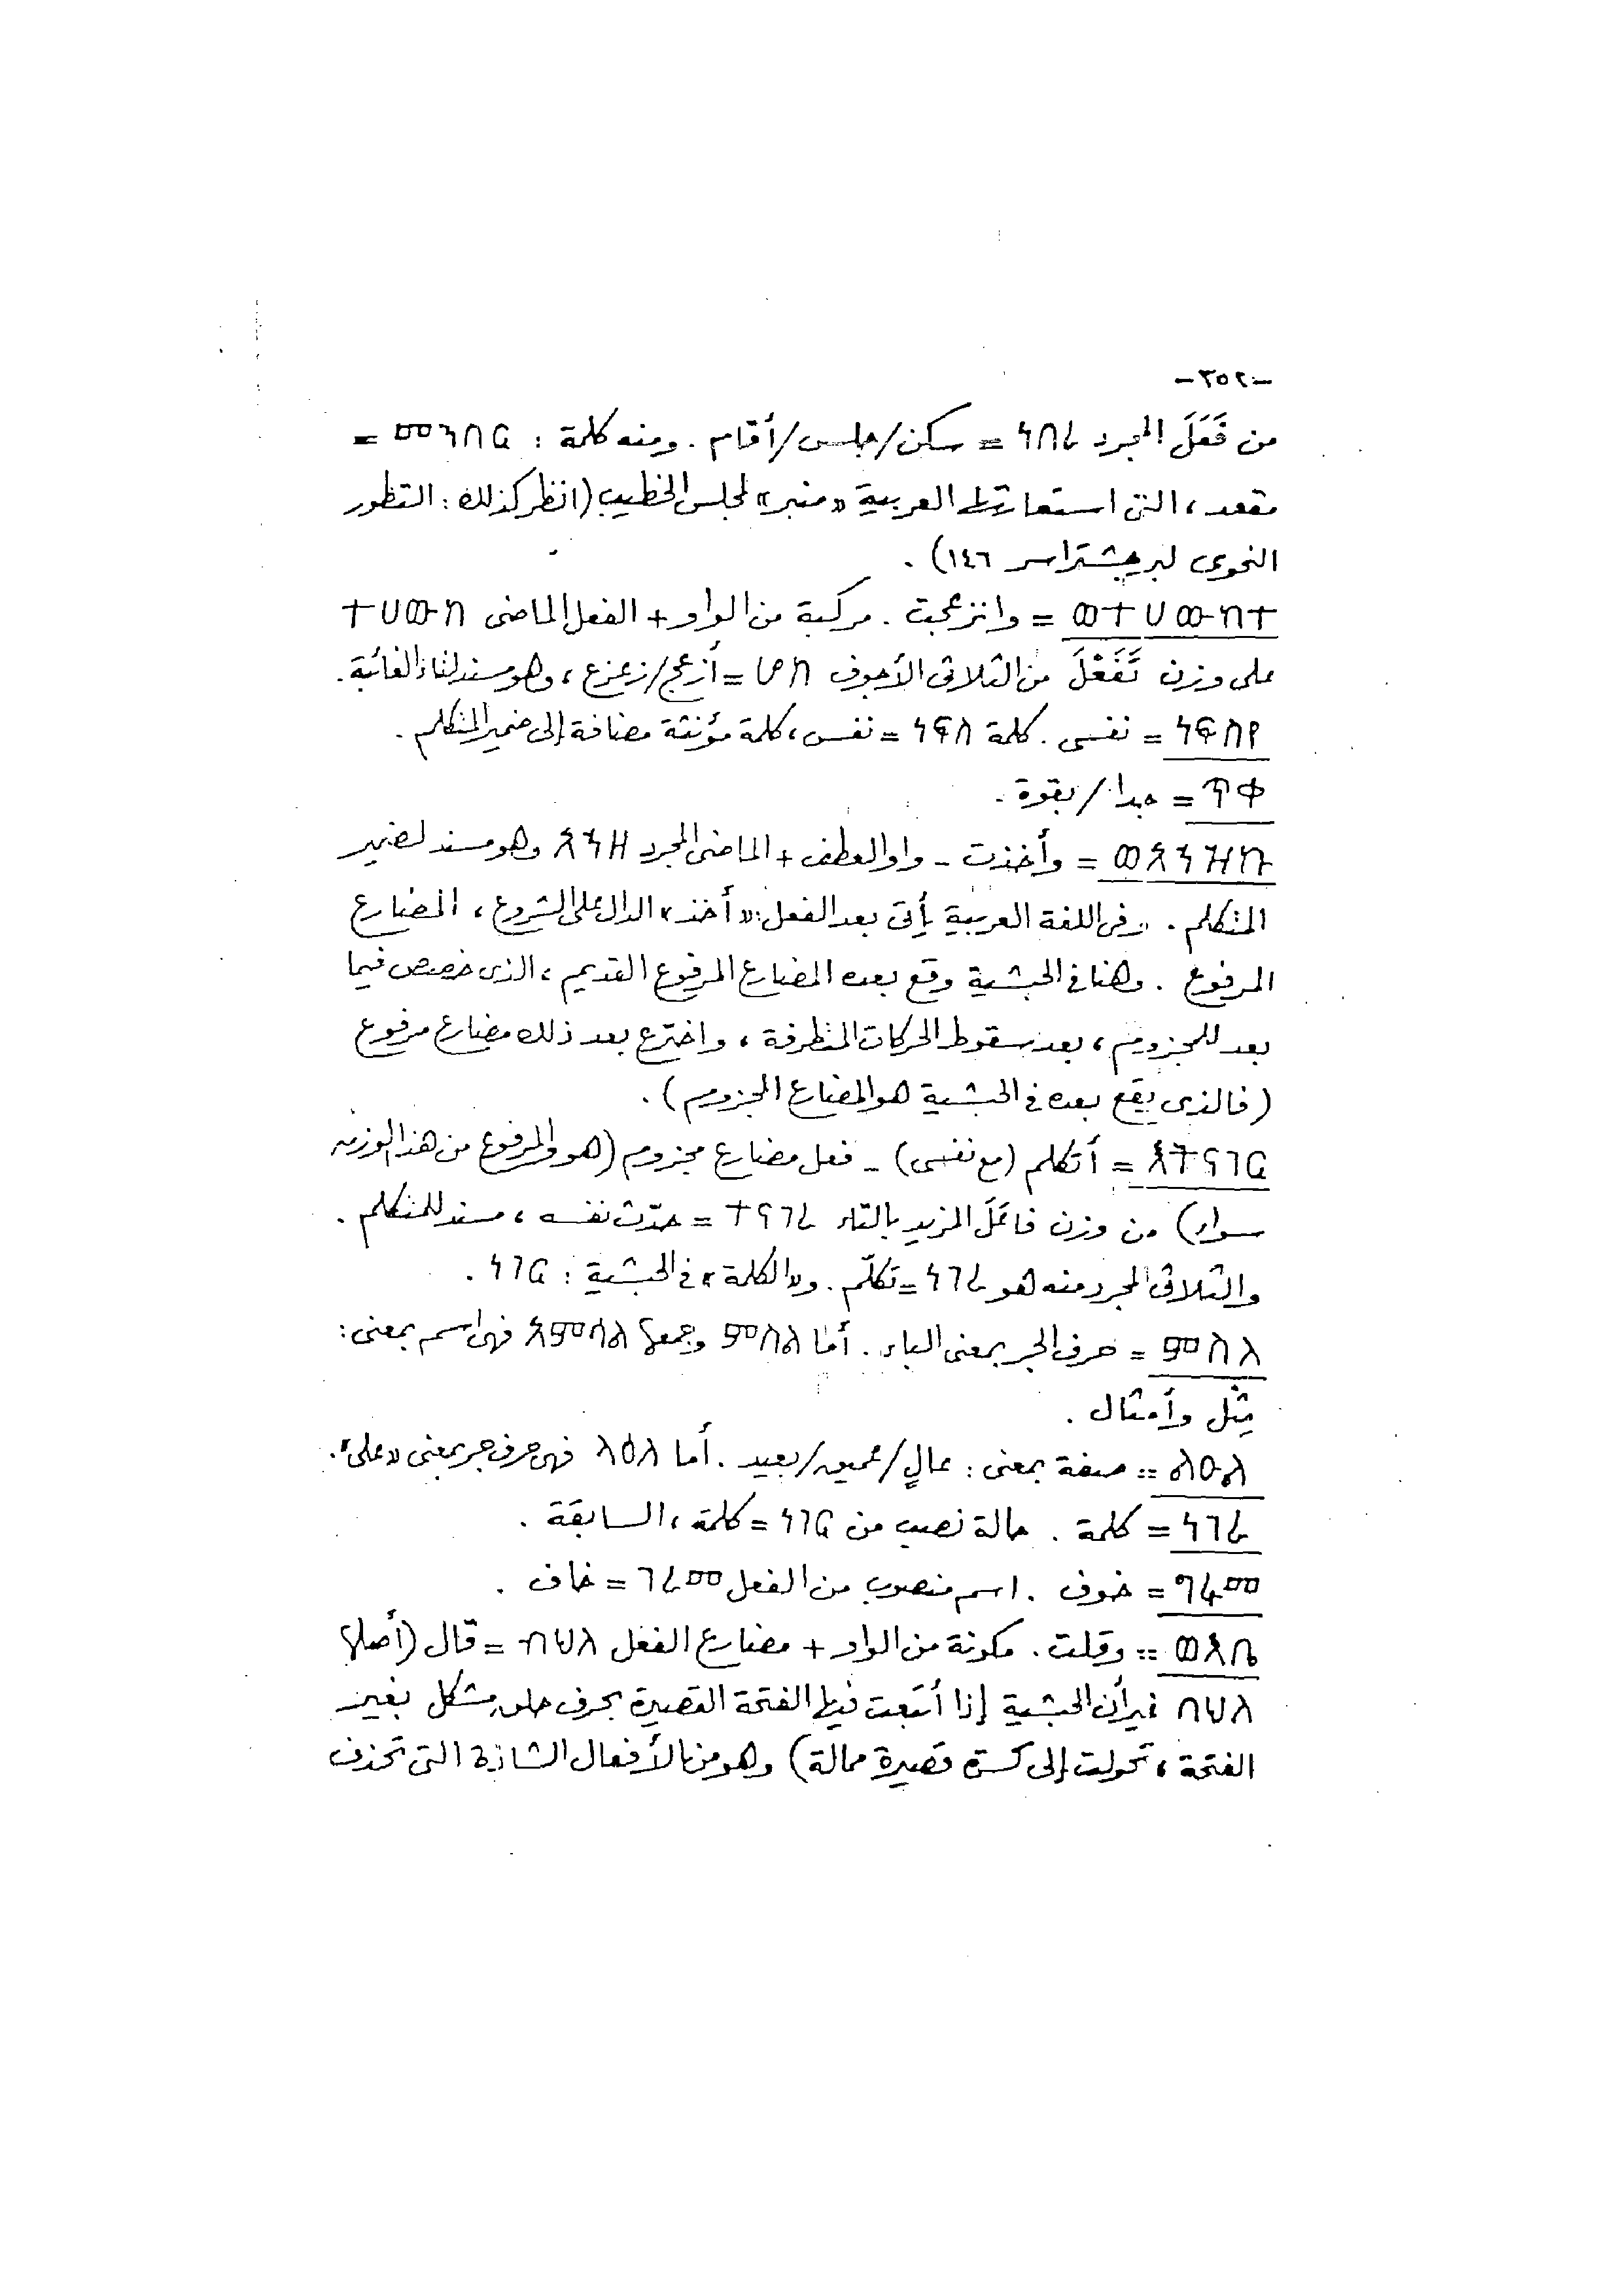 -٣٥٢-
من فَعَلَ المجرد ነበረ = سكن/جلس/أقام. ومنه كلمة: መንበር =
مقعد، التى استعارتها العربية «منبر» لمجلس الخطيب (انظر كذلك: التطور
النحوى لبرجشتراسر ١٤٦).
ወተሀውከት = وانزعجت. مركبة من الواو + الفعل الماضى ተሀውከ
على وزن تَفَعْلَ من الثلاثى الأجوف ሆከ = أزعج/زعزع، وهو مسند لتاء الغائبة.
ነፍስየ = نفسى. كلمة ነፍስ = نفس، كلمة مؤنثة مضافة إلى ضمير المتكلم.
ጥቀ = جدا/بقوة.
ወአኀዝኩ = وأخذت - واو العطف + الماضى المجرد አኀዘ وهو مسند لضمير
المتكلم. وفى اللغة العربية يأتى بعد الفعل: «أخذ» الدال على الشروع، المضارع
المرفوع. وهنا فى الحبشية وقع بعده المضارع المرفوع القديم، الذى خصص فيما
بعد للمجزوم، بعد سقوط الحركات المتطرفة، واخترع بعد ذلك مضارع مرفوع
(فالذى يقع بعده فى الحبشية هو المضارع المجزوم).
እትናገር = أتكلم (مع نفسى) - فعل مضارع مجزوم (هو والمرفوع من هذا الوزن
سواء) من وزن فاعَلَ المزيد بالتاء ተናገረ = حدّث نفسه، مسند للمتكلم.
والثلاثى المجرد منه هو ነገረ = تكلّم. و«الكلمة» فى الحبشية: ነገር.
በመ = حرف الجر بمعنى الباء. أما ምስል وجمعها አምሳል فهى اسم بمعنى:
مِثْل وأمثال.
ልዑል = صفة بمعنى: عالٍ/عميق/بعيد. أما ላዕለ فهى حرف جر بمعنى «على».
ነገረ = كلمة. حالة نصب من ነገር = كلمة، السابقة.
ግሩመ = خوف. اسم منصوب من الفعل ገረመ = خاف.
ወእቤ = وقلت. مكونة من الواو + مضارع الفعل ብህለ = قال (أصلها
በህለ غير أن الحبشية إذا أتبعت فيها الفتحة القصيرة بحرف حلق مشكل بغير
الفتحة، تحولت إلى كسرة قصيرة ممالة) وهو من الأفعال الشاذة التى تحذف